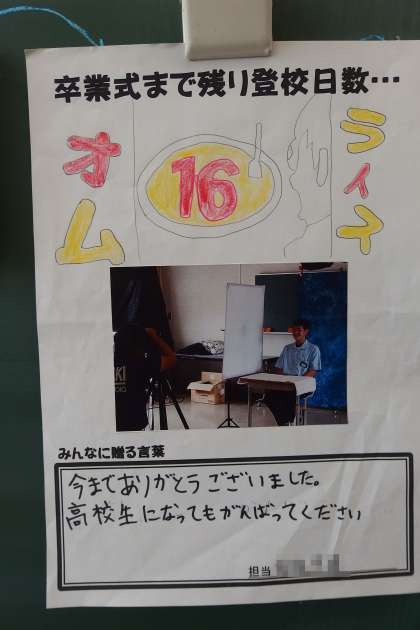 卒業式まで残り登校日数…
オム
16
ライス
KI
みんなに贈る言葉
今までありがとうございました。
高校生になってもがんばってください
担当